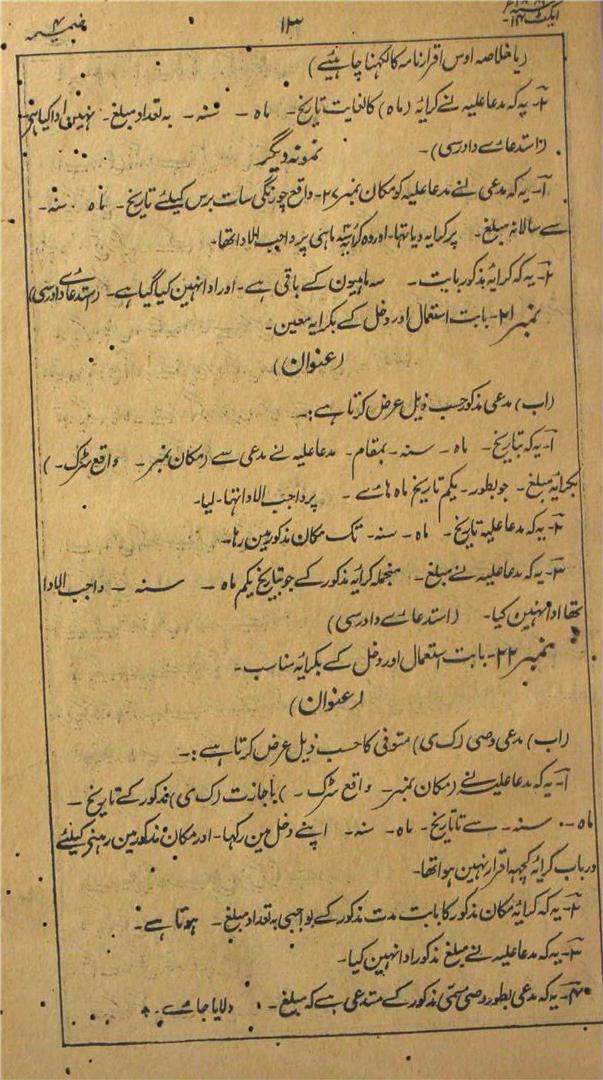 ضمیمہ ۴
۱۳
ایکٹ ۱۴
(یا خلاصہ اوس اقرارنامہ کا لکھنا چاہیئے)
۲- یہ کہ مدعا علیہ نے کرایہ (ماہ) کا لغایت تاریخ - ماہ - سنہ - بہ تعداد مبلغ - نہین ادا کیا ہے
(استدعاے دادرسی) -
نمونہ دیگر
۱- یہ کہ مدعی نے مدعا علیہ کو مکان نمبر ۲۷ - واقع چورنگی سات برس کیلئے تاریخ - ماہ - سنہ -
سے سالانہ مبلغ - پر کرایہ دیا تہا - اور وہ کرایہ سہ ماہی پر واجب الادا تھا -
۲- یہ کہ کرایہ مذکور بابت - سہ ماہیون کے باقی ہے - اور ادا نہین کیا گیا ہے - (استدعاے دادرسی)
نمبر ۲۱ - بابت استعمال اور دخل کے بکرایہ معین -
(عنوان)
(اب) مدعی مذکور حسب ذیل عرض کرتا ہے :-
۱- یہ کہ بتاریخ - ماہ - سنہ - بمقام - مدعا علیہ نے مدعی سے (مکان نمبر - واقع سڑک - )
بکرایہ مبلغ - جو بطور - یکم تاریخ ماہ ہاے - پر واجب الادا تہا - لیا -
۲- یہ کہ مدعا علیہ تاریخ - ماہ - سنہ - تک مکان مذکور مین رہا -
۳- یہ کہ مدعا علیہ نے مبلغ - منجملہ کرایہ مذکور کے جو بتاریخ یکم ماہ - سنہ - واجب الادا
تھا ادا نہین کیا - (استدعاے دادرسی)
نمبر ۲۲ - بابت استعمال اور دخل کے بکرایہ مناسب -
(عنوان)
(اب) مدعی وصی (ک ی) متوفی کا حسب ذیل عرض کرتا ہے :-
۱- یہ کہ مدعا علیہ نے (مکان نمبر - واقع سڑک - ) باجازت (ک ی) مذکور کے تاریخ -
ماہ - سنہ - سے تا تاریخ - ماہ - سنہ - اپنے دخل مین رکہا - اور مکان مذکور مین رہنے کیلئے
در باب کرایہ کچہہ اقرار نہین ہوا تھا -
۲- یہ کہ کرایہ مکان مذکور کا بابت مدت مذکور کے بواجبی بہ تعداد مبلغ - ہوتا ہے -
۳- یہ کہ مدعا علیہ نے مبلغ مذکور ادا نہین کیا -
۴- یہ کہ مدعی بطور وصی مسمی مذکور کے مستدعی ہے کہ مبلغ - دلایا جاے -